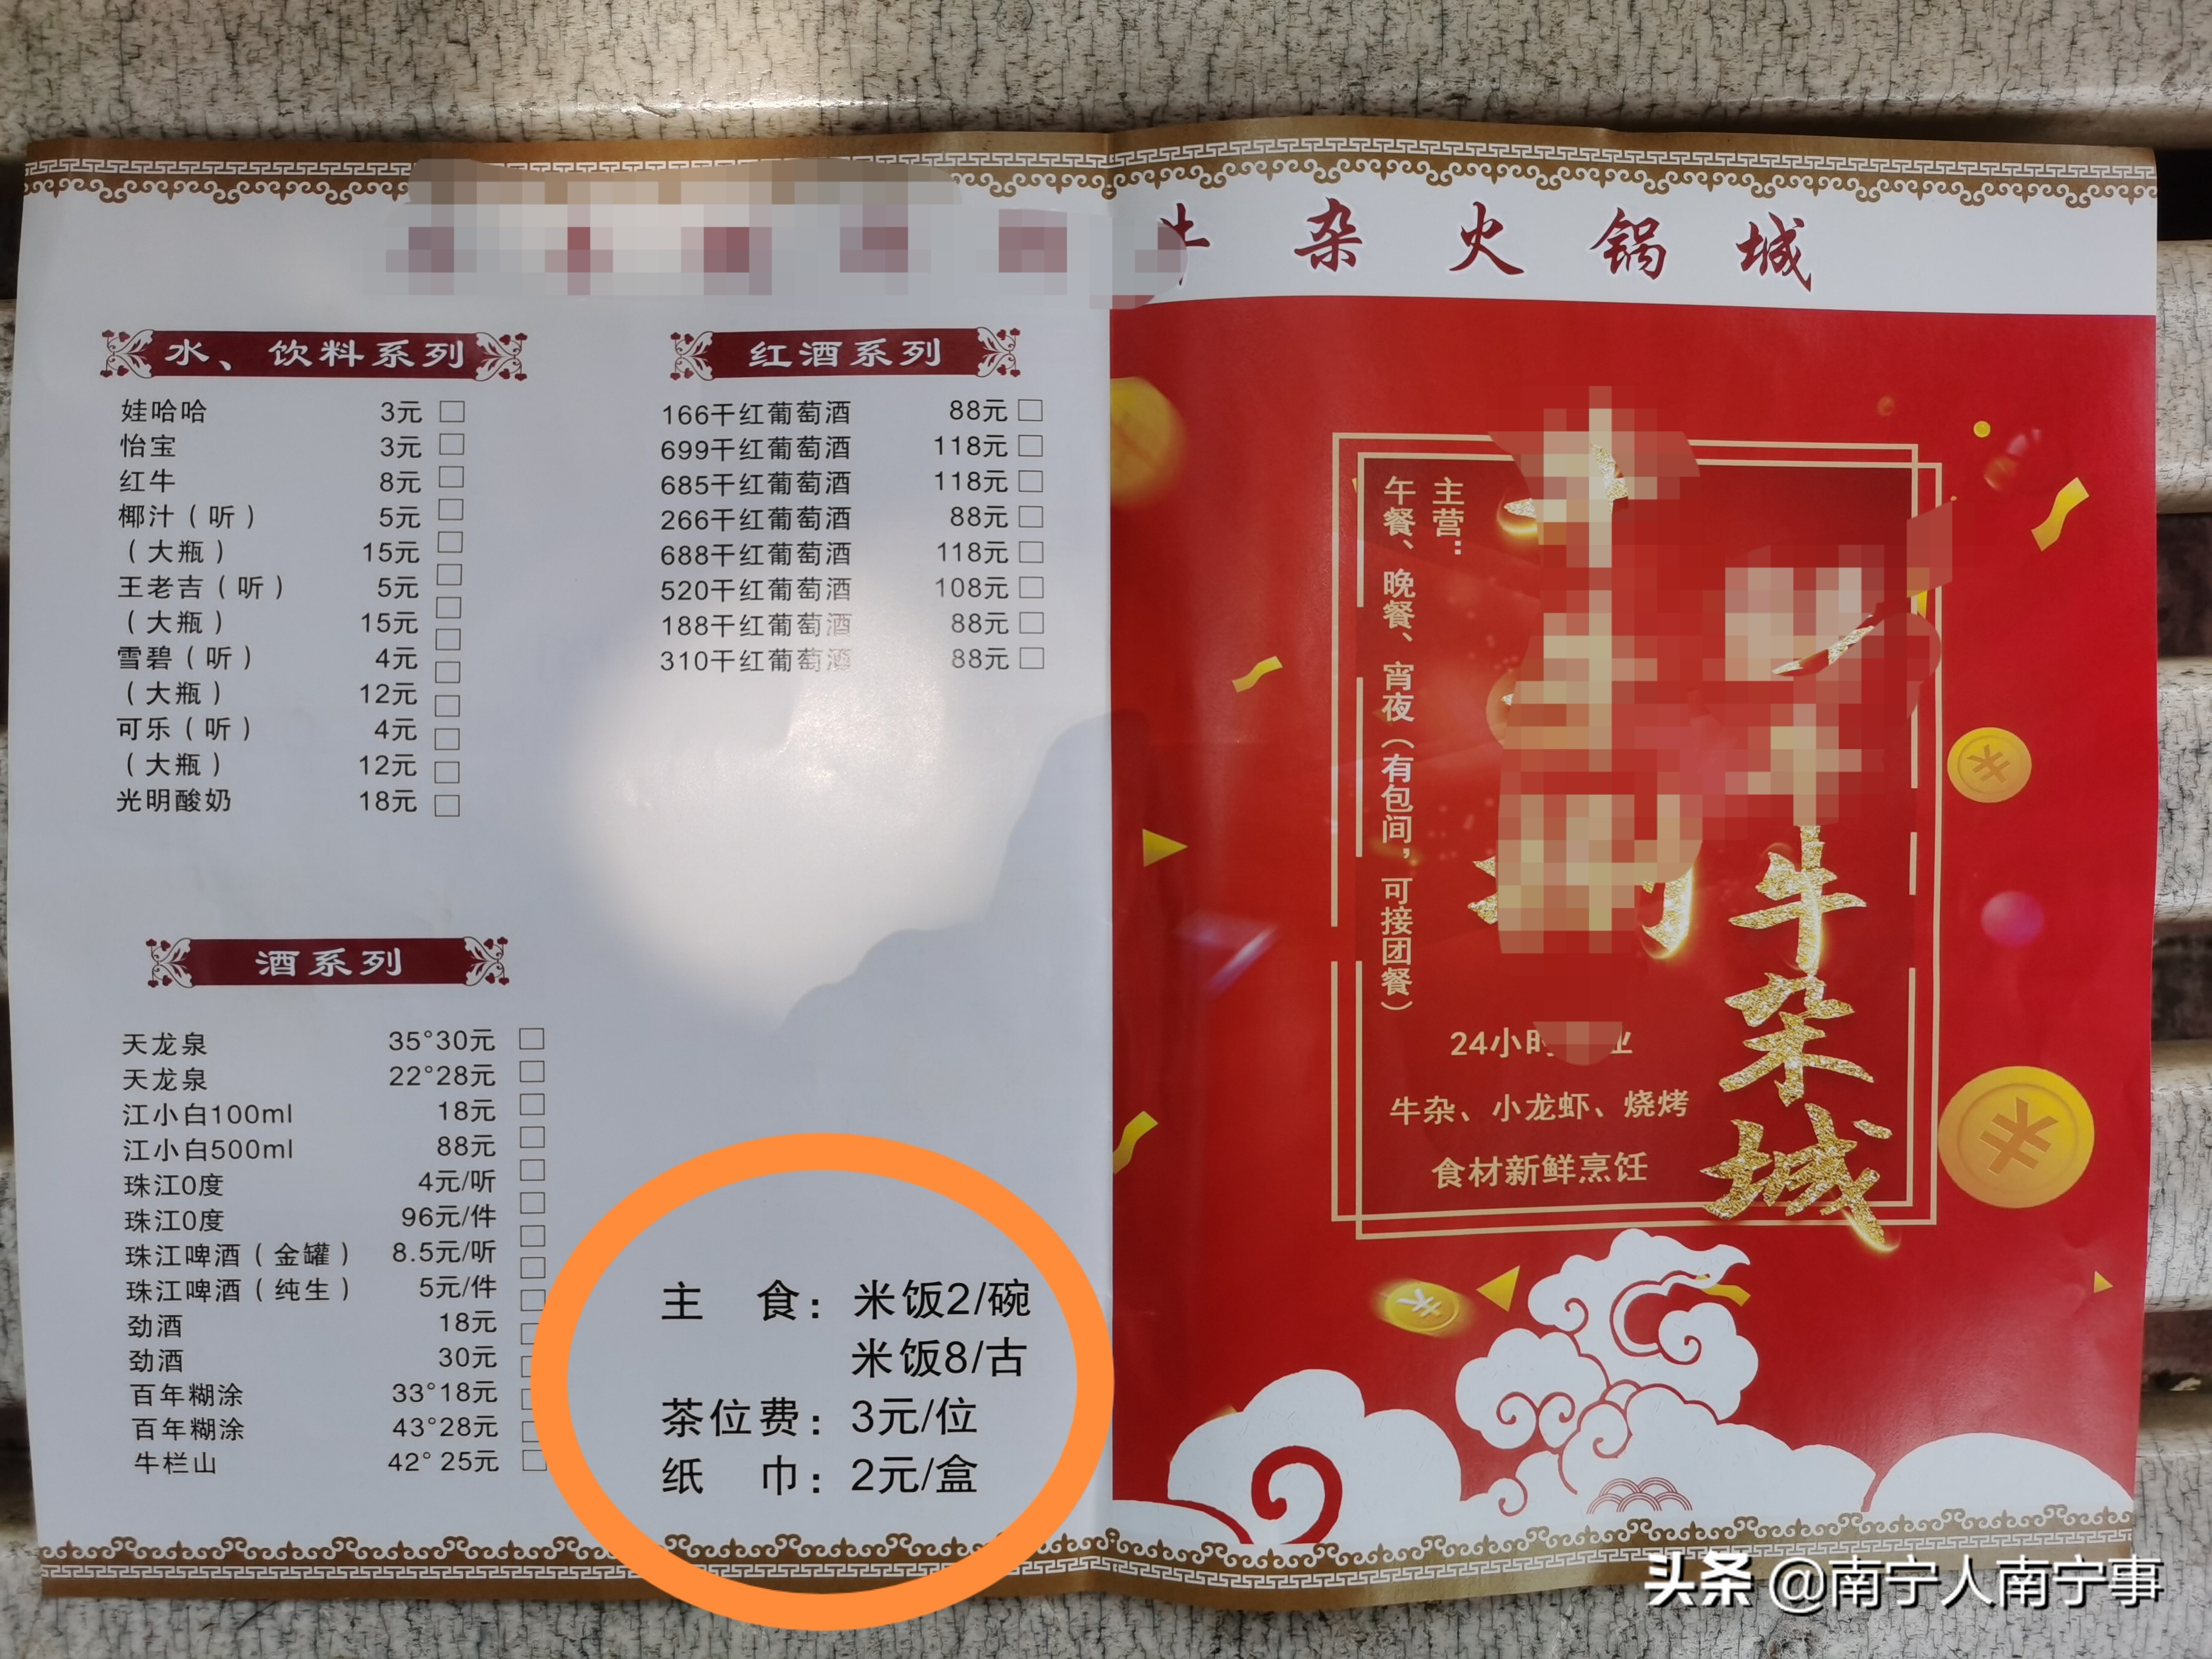 杂火锅城
水、饮料系列
娃哈哈 3元
怡宝 3元
红牛 8元
椰汁（听） 5元
（大瓶） 15元
王老吉（听） 5元
（大瓶） 15元
雪碧（听） 4元
（大瓶） 12元
可乐（听） 4元
（大瓶） 12元
光明酸奶 18元
红酒系列
166干红葡萄酒 88元
699干红葡萄酒 118元
685干红葡萄酒 118元
266干红葡萄酒 88元
688干红葡萄酒 118元
520干红葡萄酒 108元
188干红葡萄酒 88元
310干红葡萄酒 88元
酒系列
天龙泉 35°30元
天龙泉 22°28元
江小白100ml 18元
江小白500ml 88元
珠江0度 4元/听
珠江0度 96元/件
珠江啤酒（金罐） 8.5元/听
珠江啤酒（纯生） 5元/件
劲酒 18元
劲酒 30元
百年糊涂 33°18元
百年糊涂 43°28元
牛栏山 42°25元
主 食：米饭2/碗
米饭8/古
茶位费：3元/位
纸 巾：2元/盒
牛杂城
主营：
午餐、晚餐、宵夜（有包间，可接团餐）
24小时 业
牛杂、小龙虾、烧烤
食材新鲜烹饪
头条 @南宁人南宁事